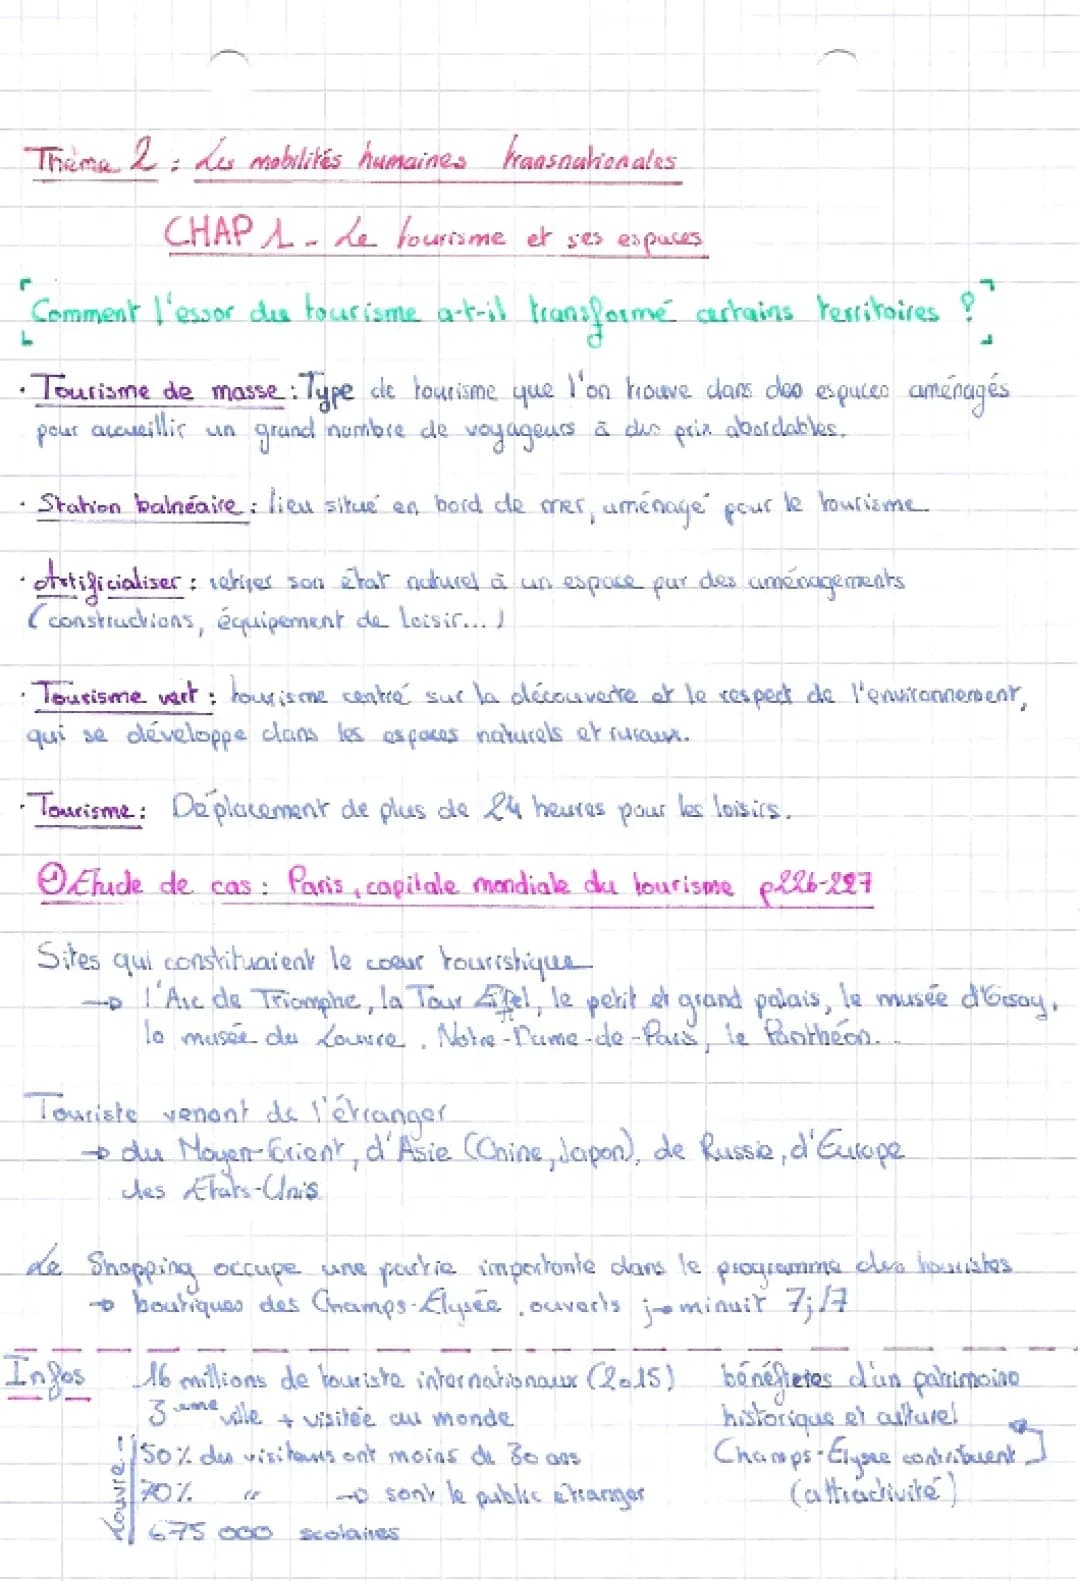 Thème 2 : Les mobilités humaines transnationales
CHAP 1 - Le tourisme et ses espaces
Comment l'essor du tourisme a-t-il transformé certains territoires ?
· Tourisme de masse : Type de tourisme que l'on trouve dans des espaces aménagés
pour accueillir un grand nombre de voyageurs à des prix abordables.
· Station balnéaire : lieu situé en bord de mer, aménagé pour le tourisme.
· Artificialiser : retirer son état naturel à un espace par des aménagements
(constructions, équipement de loisir...)
· Tourisme vert : tourisme centré sur la découverte et le respect de l'environnement,
qui se développe dans les espaces naturels et ruraux.
· Tourisme : Déplacement de plus de 24 heures pour les loisirs.
① Etude de cas : Paris, capitale mondiale du tourisme p226-227
Sites qui constituaient le coeur touristique
→ l'Arc de Triomphe, la Tour Eifel, le petit et grand palais, le musée d'Orsay,
le musée du Louvre, Notre-Dame-de-Paris, le Panthéon...
Touriste venant de l'étranger
→ du Moyen-Orient, d'Asie (Chine, Japon), de Russie, d'Europe
des Etats-Unis
Le Shopping occupe une partie importante dans le programme des touristes
→ boutiques des Champs-Elysée, ouverts j→minuit 7j/7
Infos 16 millions de touriste internationaux (2015) bénéfictes d'un patrimoine
3eme ville + visitée au monde historique et culturel
50% des visiteurs ont moins de 30 ans Champs-Elysée contribuent
Louvre 70% " → sont le public étranger (attractivité)
675 000 scolaires